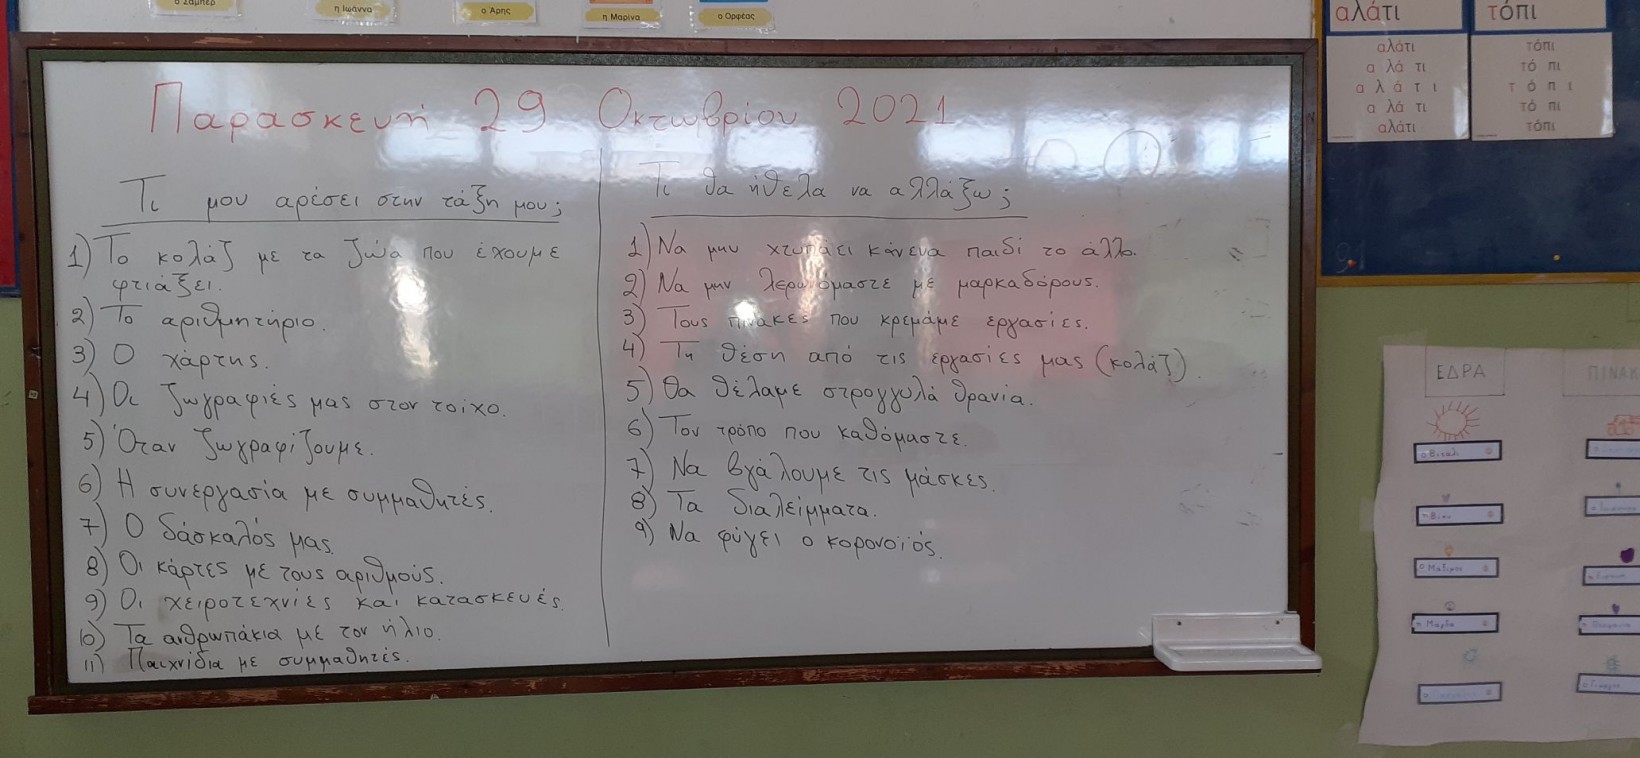 ο Σάμπερ
η Ιωάννα
ο Άρης
η Μαρίνα
ο Ορφέας
Παρασκευή 29 Οκτωβρίου 2021
Τι μου αρέσει στην τάξη μου;
1) Το κολάζ με τα ζώα που έχουμε
φτιάξει.
2) Το αριθμητήριο.
3) Ο χάρτης.
4) Οι ζωγραφιές μας στον τοίχο.
5) Όταν ζωγραφίζουμε.
6) Η συνεργασία με συμμαθητές.
7) Ο δάσκαλός μας.
8) Οι κάρτες με τους αριθμούς.
9) Οι χειροτεχνίες και κατασκευές.
10) Τα ανθρωπάκια με τον ήλιο.
11) Παιχνίδια με συμμαθητές.
Τι θα ήθελα να αλλάξω;
1) Να μην χτυπάει κάνενα παιδί το άλλο.
2) Να μην λερωνόμαστε με μαρκαδόρους.
3) Τους πίνακες που κρεμάμε εργασίες.
4) Τη θέση από τις εργασίες μας (κολάζ).
5) Θα θέλαμε στρογγυλά θρανία.
6) Τον τρόπο που καθόμαστε.
7) Να βγάλουμε τις μάσκες.
8) Τα διαλείμματα.
9) Να φύγει ο κορονοϊός.
αλάτι
αλάτι
α λά τι
α λ ά τ ι
α λά τι
αλάτι
τόπι
τόπι
τό πι
τ ό π ι
τό πι
τόπι
ΕΔΡΑ
ΠΙΝΑΚ
η Μάγδα